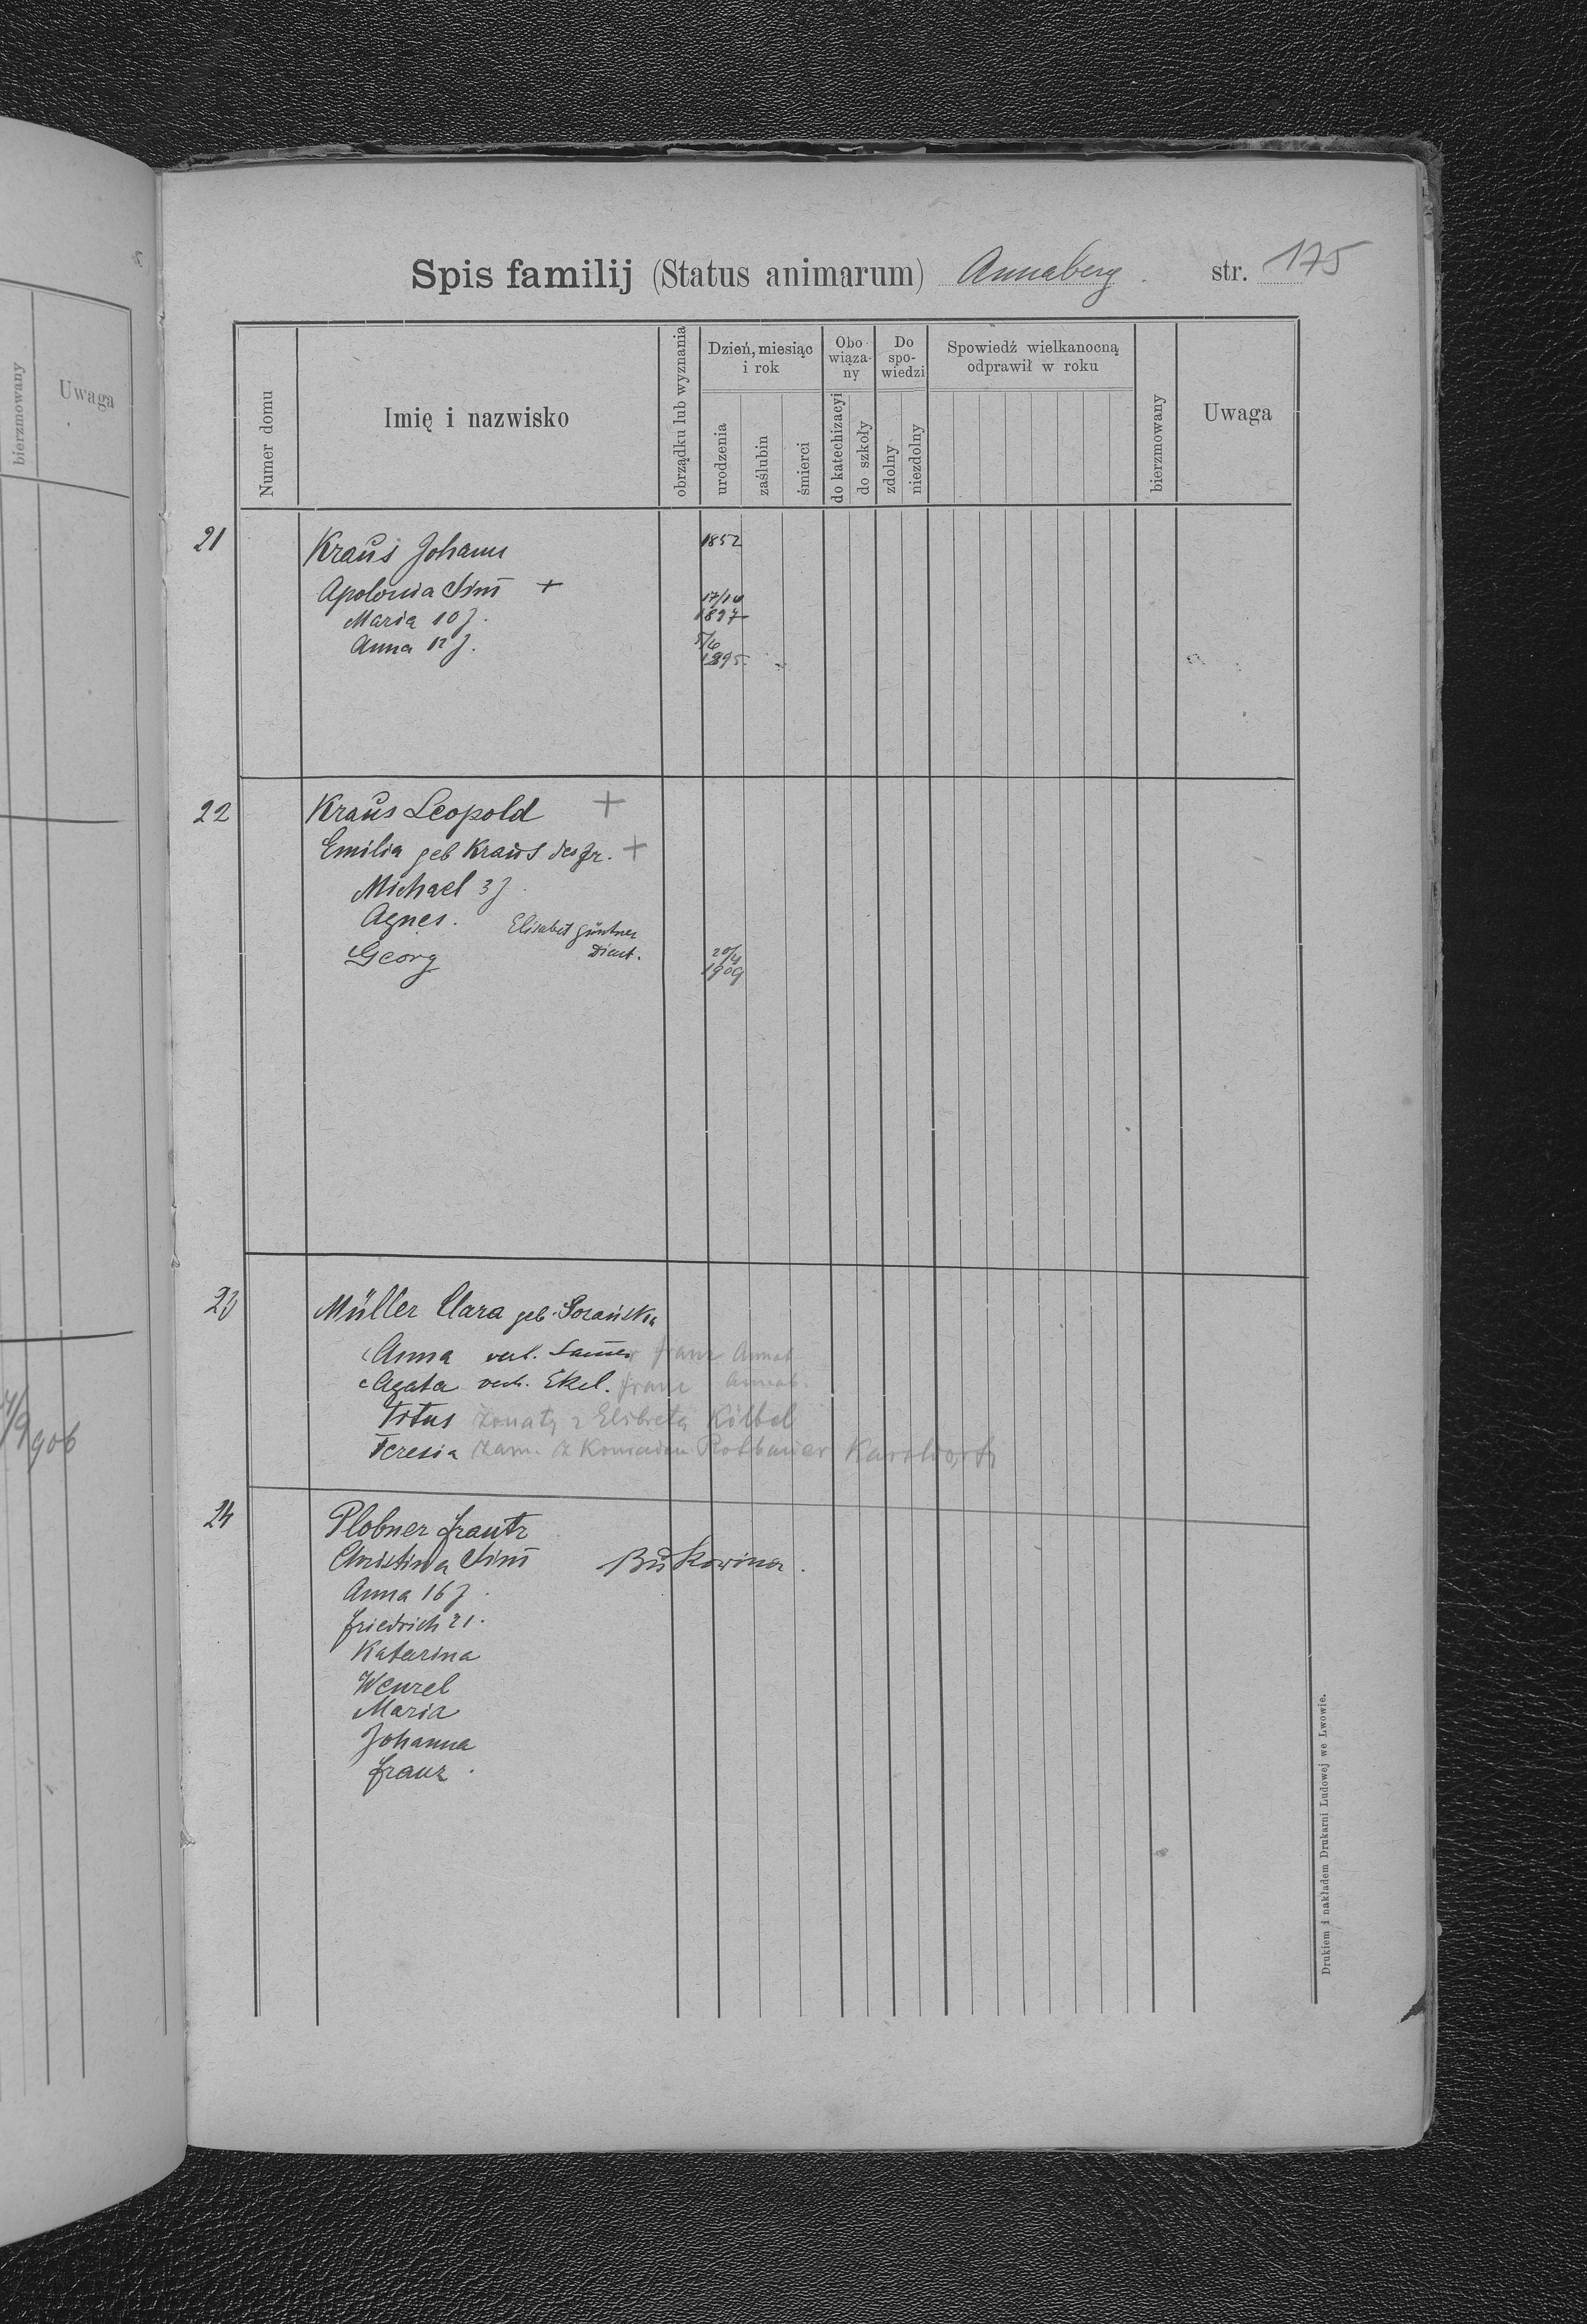 bierzmowany
Uwaga
4/9
906
Spis familij (Status animarum) Annaberg str. 175
Numer domu
Imię i nazwisko
obrządku lub wyznania
Dzień, miesiąc
i rok
urodzenia
zaślubin
śmierci
Obo
wiąza-
ny
do katechizacyi
do szkoły
Do
spo-
wiedzi
zdolny
niezdolny
Spowiedź wielkanocną
odprawił w roku
bierzmowany
Uwaga
21 Kraus Johann 1852
Apolonia +
Maria 10 J. 17/10 1897
Anna 12 J. 5/6 1895
22 Kraus Leopold +
Emilia geb Kraus +
Michael 3 J.
Agnes. Elisabet Güntner
Georg Dient. 20/4 1909
23 Müller Clara geb. Sorańska
Anna verh. Franz Annab
Agata verh. Ekel. Franz Annab.
Titus żonaty z Elibretą Kölbel
Teresia zam. z Rotbauer Karlsdorf
24 Plobner Frantz
Christina Bukowina.
Anna 16 J.
Friedrich 21.
Katarina
Wenzel
Maria
Johanna
Franz.
Drukiem i nakładem Drukarni Ludowej we Lwowie.